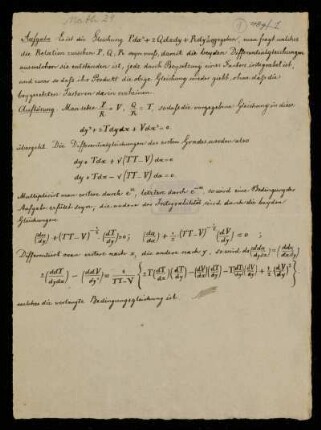 Math. 24
Aufgabe. Es ist die Gleichung Pdx² + 2Qdxdy + Rdy² gegeben, man fragt welches
die Relation zwischen P, Q, R seyn muß, damit die beyden Differentialgleichungen
aus welchen sie entstanden ist, jede durch Beysetzung eines Factors integrabel ist,
und zwar so daß ihr Product die obige Gleichung wieder giebt, ohne daß die
beygesetzten Factoren darin erscheinen.
Auflösung. Man setze P/R = V, Q/R = T, so daß die vorgegebene Gleichung in diese
dy² + 2Tdydx + Vdx² = 0
übergeht. Die Differentialgleichungen des ersten Grades werden also
dy + Tdx + √(TT−V) dx = 0
dy + Tdx − √(TT−V) dx = 0
Multiplicirt man erstere durch eᵘ, letztere durch e⁻ᵘ, so wird eine Bedingung der
Aufgabe erfüllt seyn; die andere der Integrabilität wird durch die beyden
Gleichungen
Differentiirt man erstere nach x, die andere nach y, so wird da (ddu/dydx) = (ddu/dxdy)
welches die verlangte Bedingungsgleichung ist.